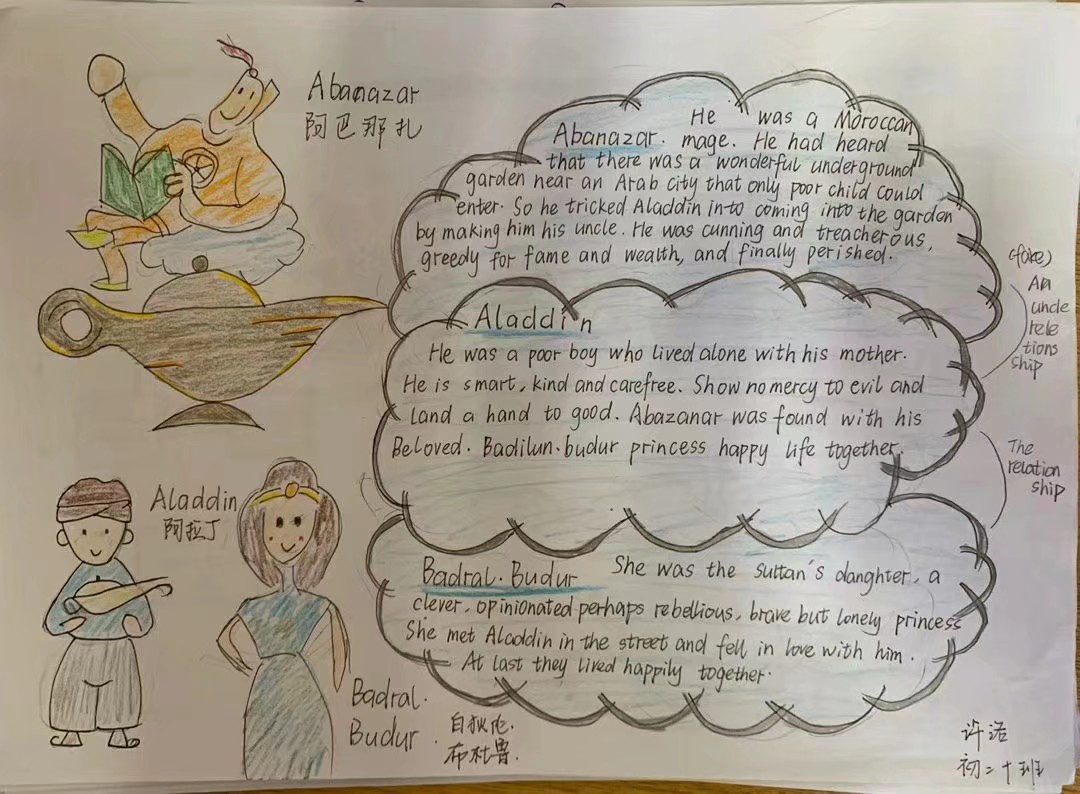 Abanazar
阿巴那扎
He was a Moroccan
Abanazar. mage. He had heard
that there was a wonderful underground
garden near an Arab city that only poor child could
enter. So he tricked Aladdin into coming into the garden
by making him his uncle. He was cunning and treacherous,
greedy for fame and wealth, and finally perished.
(fake)
An
uncle
rele
tions
ship
Aladdin
He was a poor boy who lived alone with his mother.
He is smart, kind and carefree. Show no mercy to evil and
Land a hand to good. Abazanar was found with his
Beloved. Badilun.budur princess happy life together.
The
relation
ship
Aladdin
阿拉丁
Badral.Budur She was the sultan's danghter, a
clever, opinionated perhaps rebellious, brave but lonely princess
She met Aladdin in the street and fell in love with him.
At last they lired happily together.
Badral.
Budur
布杜鲁.
许诺
初二十班